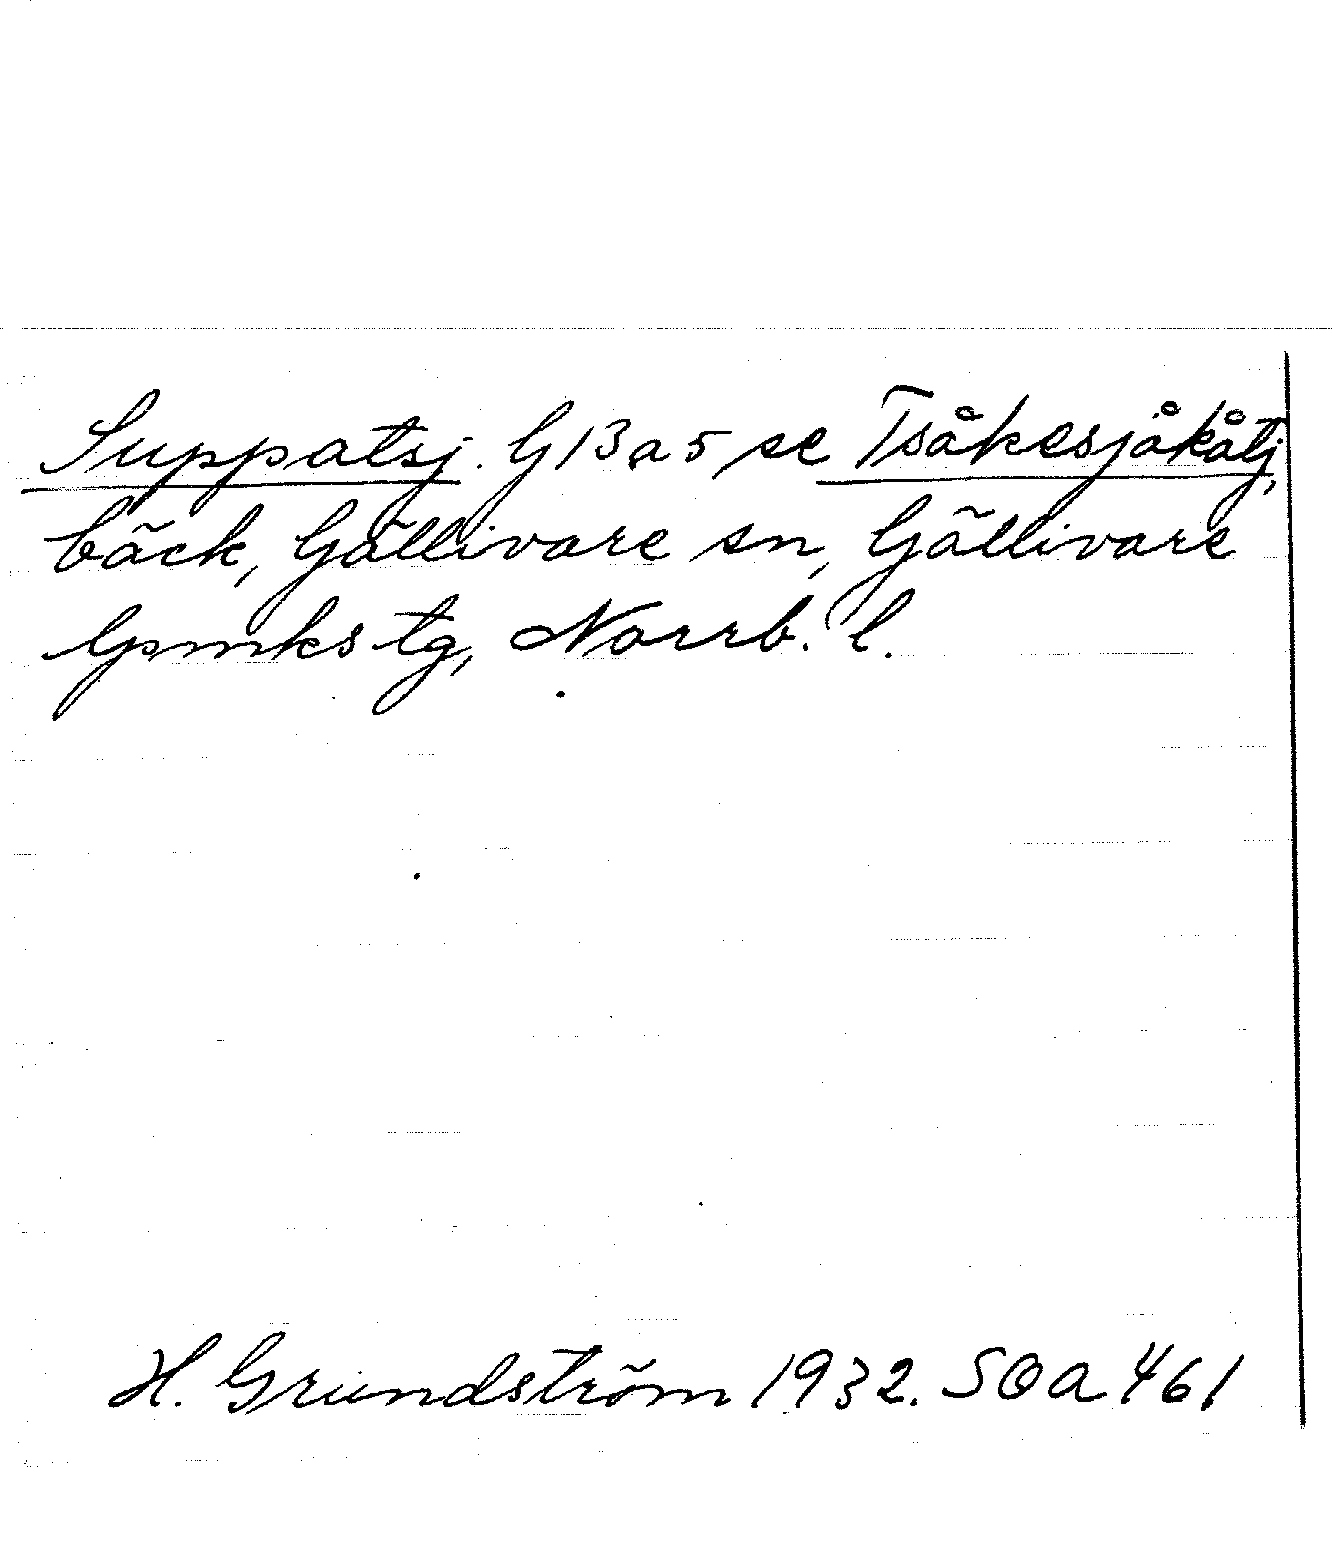 Suppatsj. G 13 a 5 se Tsåkesjåkåtj,
bäck, Gällivare sn, Gällivare
lpmks tg, Norrb. l.
H. Grundström 1932. SOA 461